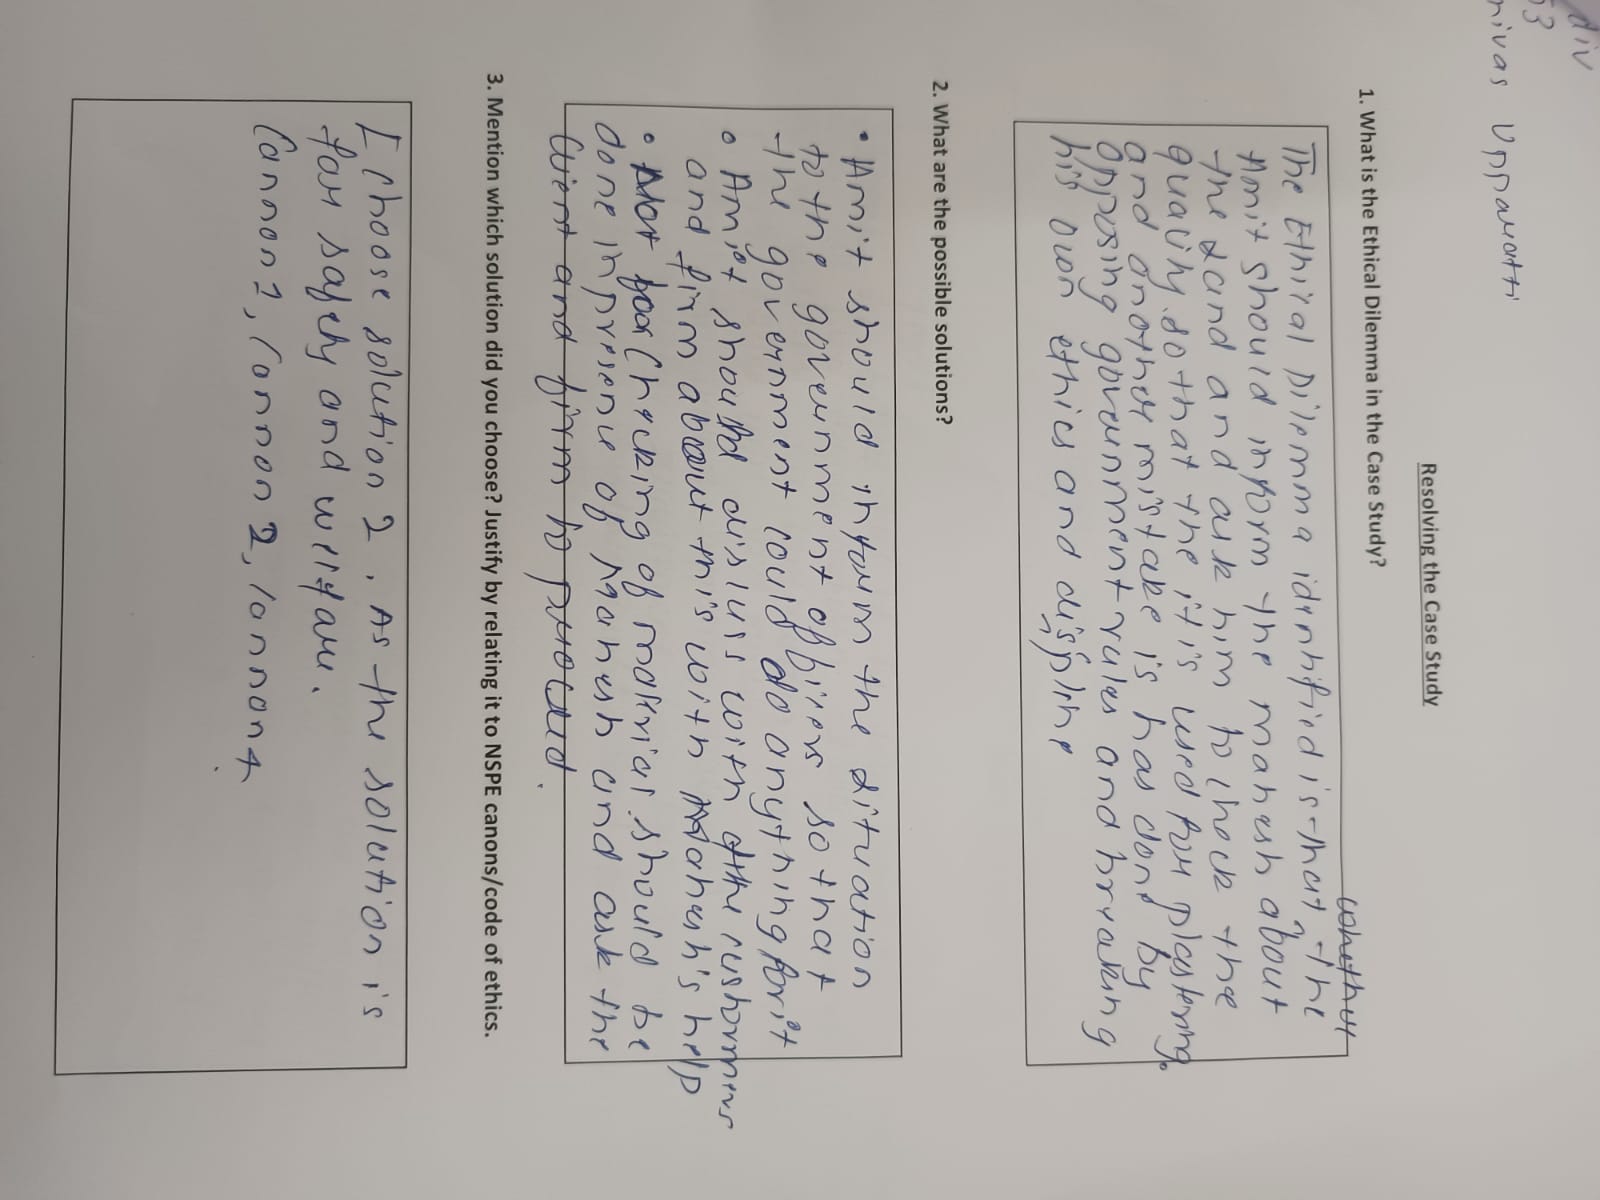 div
53
nivas Uppavatti
Resolving the Case Study
1. What is the Ethical Dilemma in the Case Study?
whether
The Ethical Dilemma identified is that, the
Amit should inform the manesh about
the sand and ask him to check the
quality so that the it is used for plastering.
and another mistake is has done by
Opposing government rules and breaking
his own ethics and disipline
2. What are the possible solutions?
• Amit should inform the situation
to the government officers so that
the government could do anything for it
• Amit should discuss with the customers
and firm about this with manesh's help
• Not for Checking of material should be
done in presence of Manesh and ask the
Client and firm to proceed.
3. Mention which solution did you choose? Justify by relating it to NSPE canons/code of ethics.
I choose solution 2. As the solution is
for safety and welfare.
Cannon 1, Cannon 2, Cannon 4